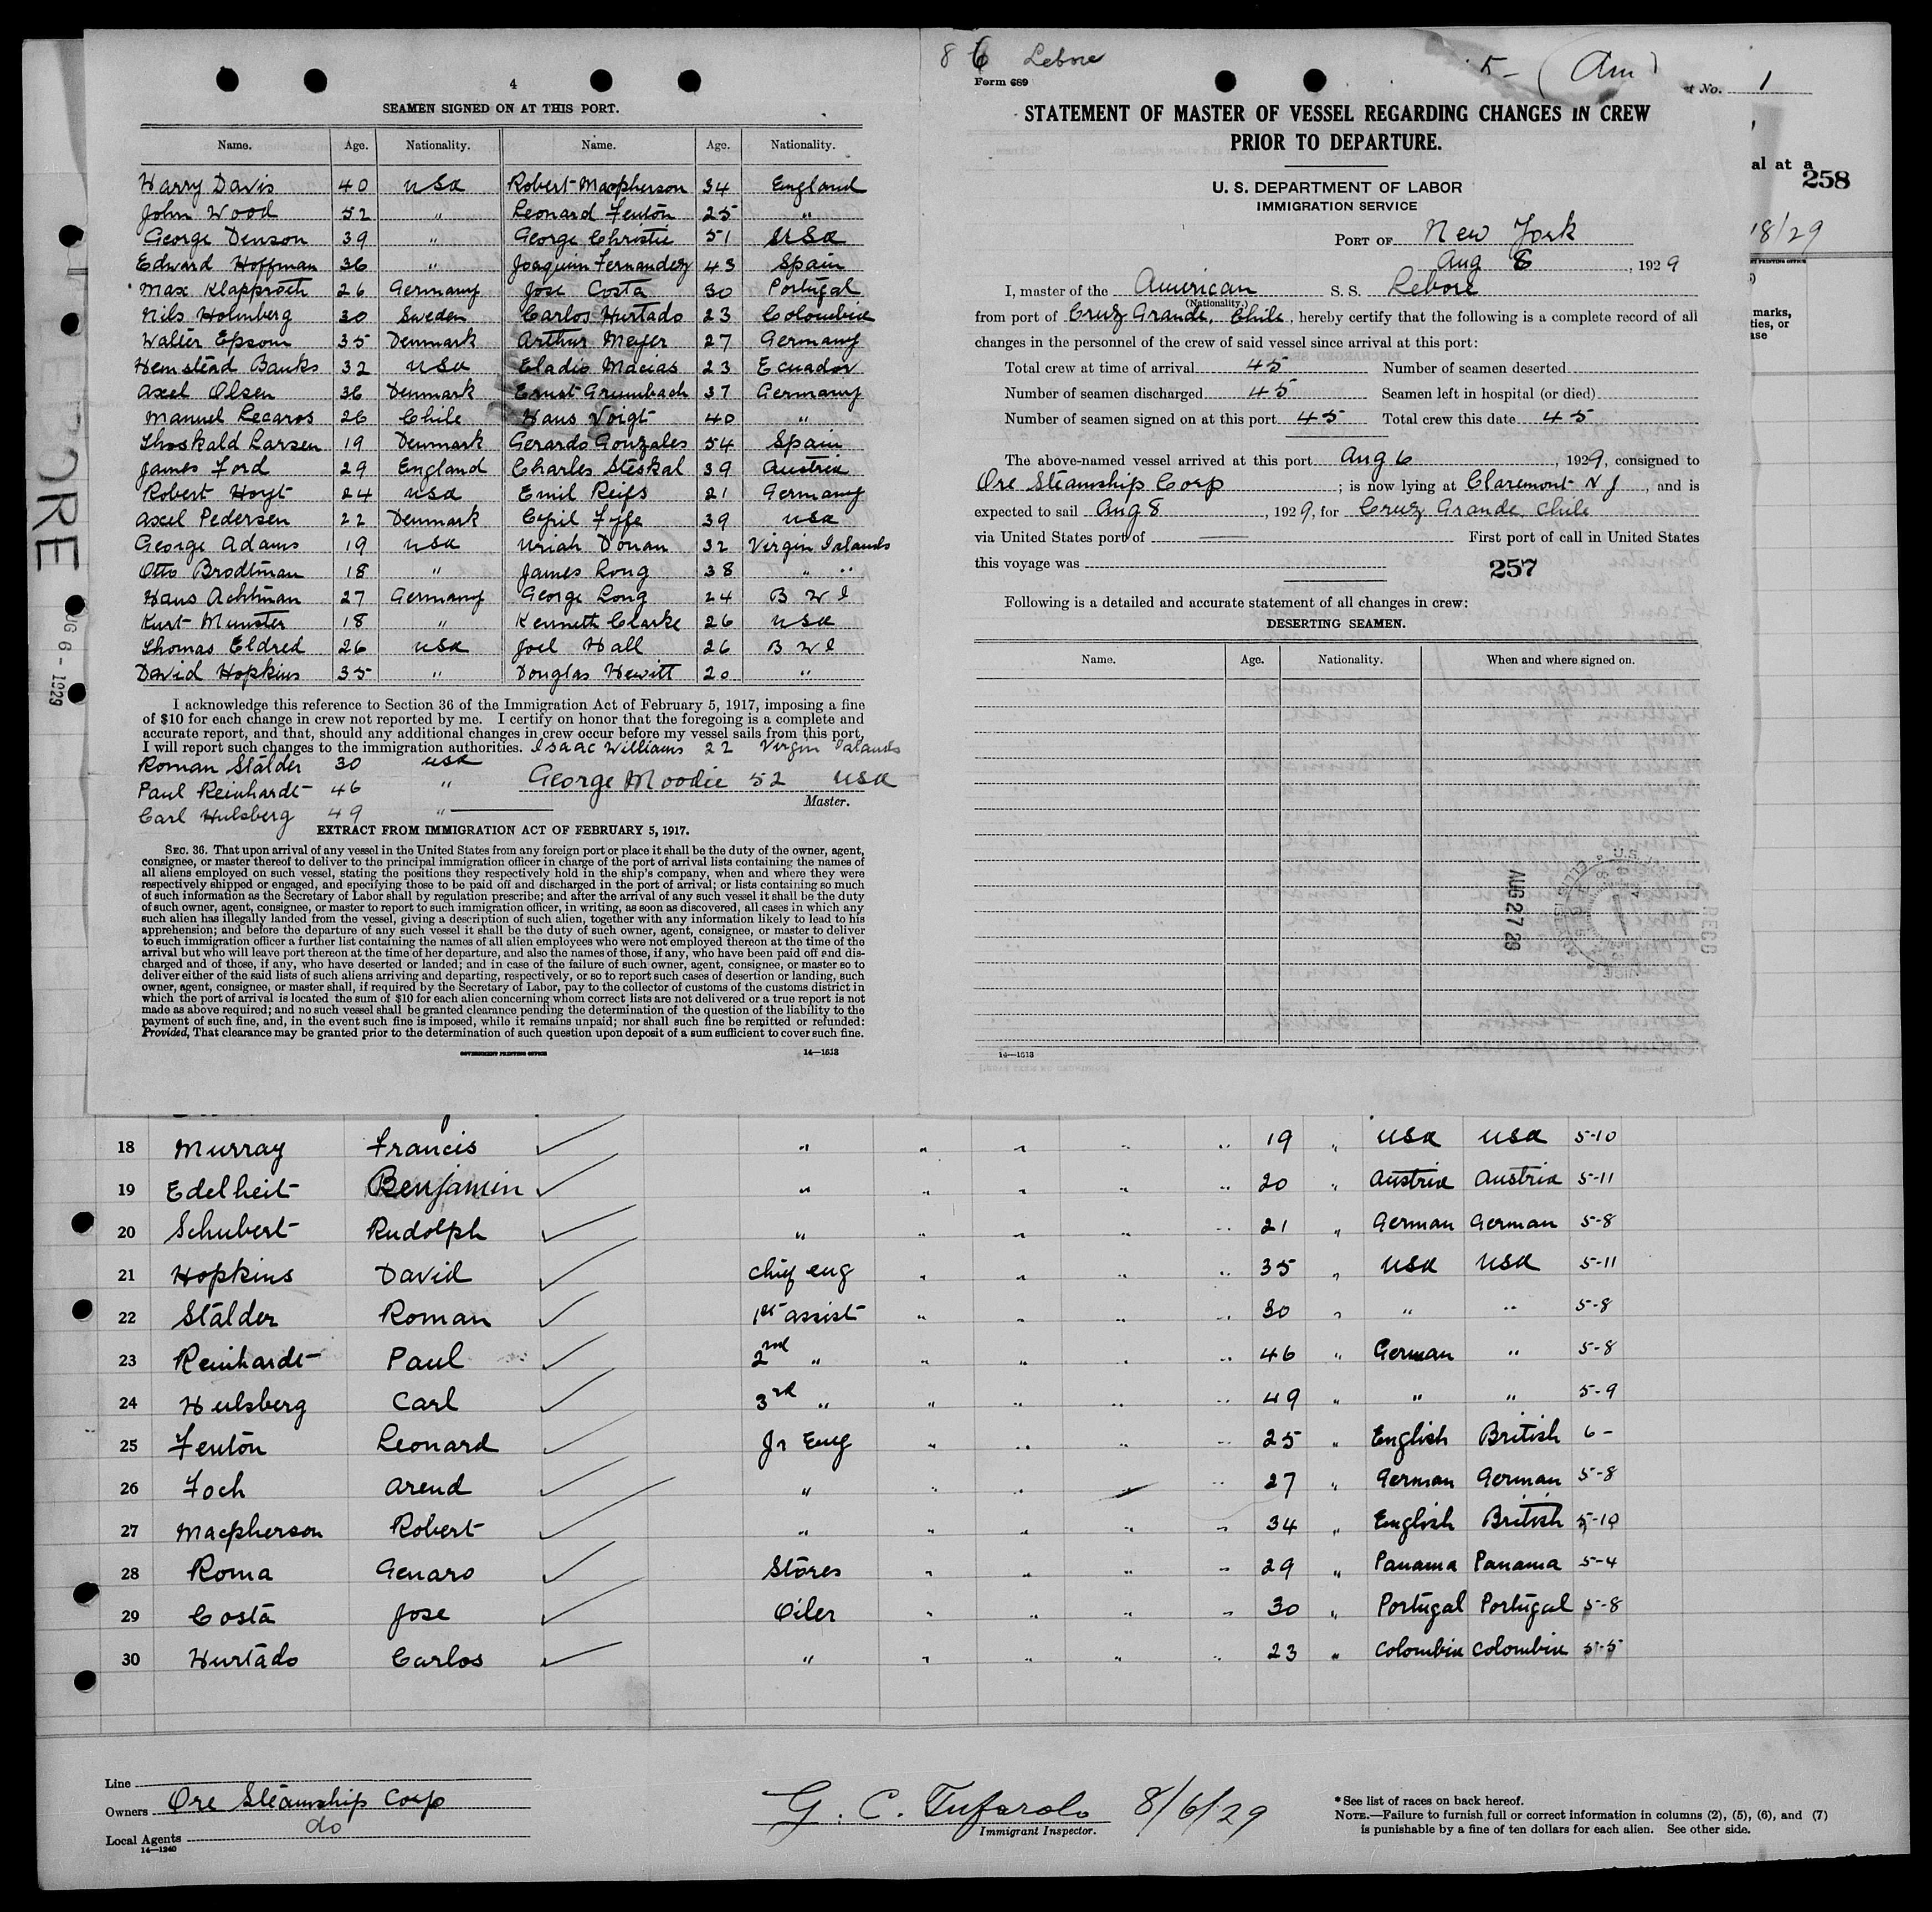 4
SEAMEN SIGNED ON AT THIS PORT.
Name. Age. Nationality. Name. Age. Nationality.
Harry Davis 40 USA Robert Macpherson 34 England
John Wood 52 " Leonard Fenton 25 "
George Denson 39 " George Christie 51 USA
Edward Hoffman 36 " Joaquim Fernandez 43 Spain
Max Klapproth 26 Germany Jose Costa 30 Portugal
Nils Holmberg 30 Sweden Carlos Hurtado 23 Colombia
Walter Epsom 35 Denmark Arthur Meyer 27 Germany
Hemstead Banks 32 USA Eladio Macias 23 Ecuador
Axel Olsen 36 Denmark Ernst Grumbach 37 Germany
Manuel Lecaros 26 Chile Hans Voigt 40 "
Thoskald Larsen 19 Denmark Gerardo Gonzales 54 Spain
James Ford 29 England Charles Steskal 39 Austria
Robert Hoyt 24 USA Emil Reifs 21 Germany
Axel Pedersen 22 Denmark Cyril Fyfe 39 USA
George Adams 19 USA Uriah Donan 32 Virgin Islands
Otto Brodtman 18 " James Long 38 " "
Hans Achtman 27 Germany George Long 24 B W I
Kurt Munster 18 " Kenneth Clarke 26 USA
Thomas Eldred 26 USA Joel Hall 26 B W I
David Hopkins 35 " Douglas Hewitt 20 "
I acknowledge this reference to Section 36 of the Immigration Act of February 5, 1917, imposing a fine
of $10 for each change in crew not reported by me. I certify on honor that the foregoing is a complete and
accurate report, and that, should any additional changes in crew occur before my vessel sails from this port,
I will report such changes to the immigration authorities. Isaac Williams 22 Virgin Islands
Roman Stalder 30 USA
Paul Reinhardt 46 " George Moodie 52 USA
Master.
Carl Hulsberg 49 "
EXTRACT FROM IMMIGRATION ACT OF FEBRUARY 5, 1917.
SEC. 36. That upon arrival of any vessel in the United States from any foreign port or place it shall be the duty of the owner, agent,
consignee, or master thereof to deliver to the principal immigration officer in charge of the port of arrival lists containing the names of
all aliens employed on such vessel, stating the positions they respectively hold in the ship's company, when and where they were
respectively shipped or engaged, and specifying those to be paid off and discharged in the port of arrival; or lists containing so much
of such information as the Secretary of Labor shall by regulation prescribe; and after the arrival of any such vessel it shall be the duty
of such owner, agent, consignee, or master to report to such immigration officer, in writing, as soon as discovered, all cases in which any
such alien has illegally landed from the vessel, giving a description of such alien, together with any information likely to lead to his
apprehension; and before the departure of any such vessel it shall be the duty of such owner, agent, consignee, or master to deliver
to such immigration officer a further list containing the names of all alien employees who were not employed thereon at the time of the
arrival but who will leave port thereon at the time of her departure, and also the names of those, if any, who have been paid off and dis-
charged and of those, if any, who have deserted or landed; and in case of the failure of such owner, agent, consignee, or master so to
deliver either of the said lists of such aliens arriving and departing, respectively, or so to report such cases of desertion or landing, such
owner, agent, consignee, or master shall, if required by the Secretary of Labor, pay to the collector of customs of the customs district in
which the port of arrival is located the sum of $10 for each alien concerning whom correct lists are not delivered or a true report is not
made as above required; and no such vessel shall be granted clearance pending the determination of the question of the liability to the
payment of such fine, and, in the event such fine is imposed, while it remains unpaid; nor shall such fine be remitted or refunded:
Provided, That clearance may be granted prior to the determination of such question upon deposit of a sum sufficient to cover such fine.
GOVERNMENT PRINTING OFFICE 14—1513
8 6 Lebore 5- (Am)
Form 689
No. 1
STATEMENT OF MASTER OF VESSEL REGARDING CHANGES IN CREW
PRIOR TO DEPARTURE.
al at a
258
U. S. DEPARTMENT OF LABOR
IMMIGRATION SERVICE
PORT OF New York
Aug 8, 1929
8/29
I, master of the American S. S. Lebore
(Nationality.)
from port of Cruz Grande, Chile, hereby certify that the following is a complete record of all
changes in the personnel of the crew of said vessel since arrival at this port:
marks,
ties, or
ase
Total crew at time of arrival 45 Number of seamen deserted
Number of seamen discharged 45 Seamen left in hospital (or died)
Number of seamen signed on at this port 45 Total crew this date 45
The above-named vessel arrived at this port Aug 6, 1929, consigned to
Ore Steamship Corp; is now lying at Claremont N J, and is
expected to sail Aug 8, 1929, for Cruz Grande, Chile
via United States port of First port of call in United States
this voyage was
257
Following is a detailed and accurate statement of all changes in crew:
DESERTING SEAMEN.
Name. Age. Nationality. When and where signed on.
AUG 27 29
RECD
14—1513
LEBORE
AUG 6 - 1929
18 Murray Francis " " " " " 19 " USA USA 5-10
19 Edelheit Benjamin " " " " " 20 " Austria Austria 5-11
20 Schubert Rudolph " " " " " 21 " German German 5-8
21 Hopkins David Chief eng " " " " 35 " USA USA 5-11
22 Stalder Roman 1st assist " " " " 30 " " " 5-8
23 Reinhardt Paul 2nd " " " " " 46 " German " 5-8
24 Hulsberg Carl 3rd " " " " " 49 " " " 5-9
25 Fenton Leonard Jr Eng " " " " 25 " English British 6-
26 Foch Arend " " " " " 27 " German German 5-8
27 Macpherson Robert " " " " " 34 " English British 5-10
28 Roma Genaro Stores " " " " 29 " Panama Panama 5-4
29 Costa Jose Oiler " " " " 30 " Portugal Portugal 5-8
30 Hurtado Carlos " " " " " 23 " Colombia Colombia 5-5
Line
Owners Ore Steamship Corp
Local Agents do
14—1240
G. C. Tufarolo 8/6/29
Immigrant Inspector.
* See list of races on back hereof.
NOTE.—Failure to furnish full or correct information in columns (2), (5), (6), and (7)
is punishable by a fine of ten dollars for each alien. See other side.